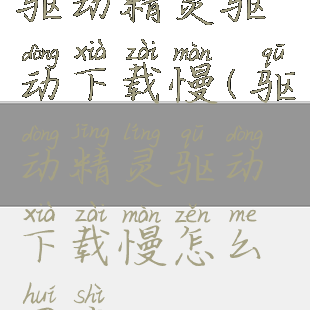 驱动精灵驱
dòng xià zài màn qū
动下载慢(驱
dòng jīng líng qū dòng
动精灵驱动
xià zài màn zěn me
下载慢怎么
huí shì